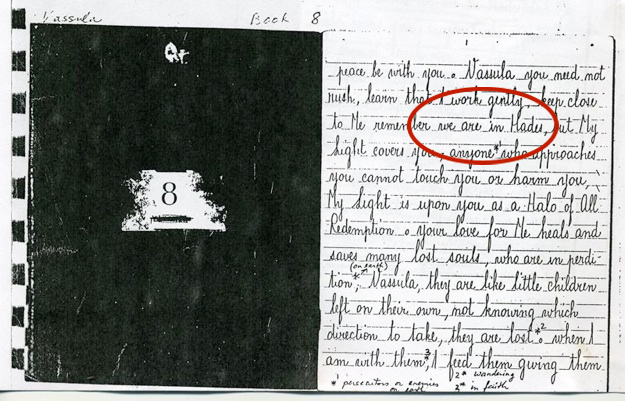 Vassula Book 8
8
1
peace be with you. Vassula you need not
rush, learn that I work gently, keep close
to Me remember we are in Hades, but My
Light covers you anyone*¹ who approaches
you cannot touch you or harm you,
My Light is upon you as a Halo of All
Redemption. your love for Me heals and
saves many lost souls, who are in perdi-
(on earth)
tion,* Vassula, they are like little children
left on their own, not knowing which
direction to take, they are lost*². when I
am with them,³* I feed them giving them
* persecutors or enemies on earth
2* wandering
3* in faith